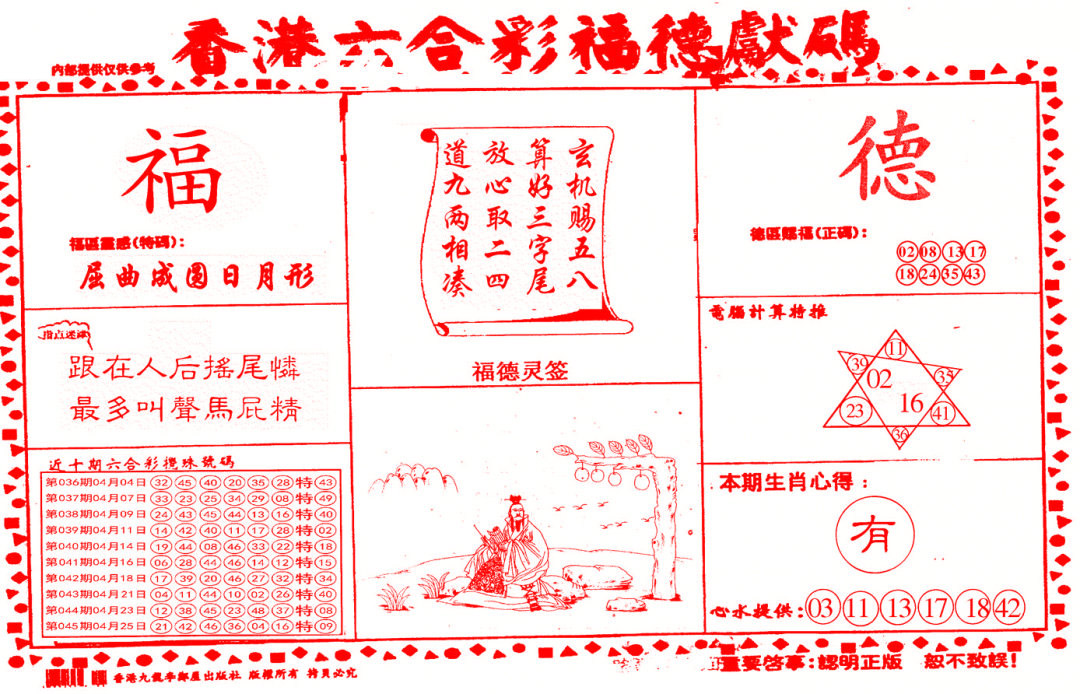 香港六合彩福德獻碼
内部提供仅供参考
福
福區靈感(特碼):
屈曲成圆日月形
指点迷津
跟在人后搖尾憐
最多叫聲馬屁精
近十期六合彩攪珠號碼
第036期04月04日 32 45 40 20 35 28 特 43
第037期04月07日 33 23 25 34 29 08 特 49
第038期04月09日 24 43 45 44 13 16 特 40
第039期04月11日 14 42 40 11 17 28 特 02
第040期04月14日 19 44 08 46 33 22 特 18
第041期04月16日 06 28 44 46 14 12 特 15
第042期04月18日 17 39 20 46 27 32 特 34
第043期04月21日 04 11 44 10 02 26 特 40
第044期04月23日 12 38 45 23 48 37 特 08
第045期04月25日 21 42 46 36 04 16 特 09
玄机赐五八
算好三字尾
放心取二四
道九两相凑
福德灵签
德
德區賜福(正碼):
02 08 13 17
18 24 35 43
電腦計算特推
11
39 02 35
23 16 41
36
本期生肖心得:
有
心水提供:03 11 13 17 18 42
香港九龍李鄭屋出版社 版權所有 拷貝必究
重要啓事:認明正版 恕不致誤!